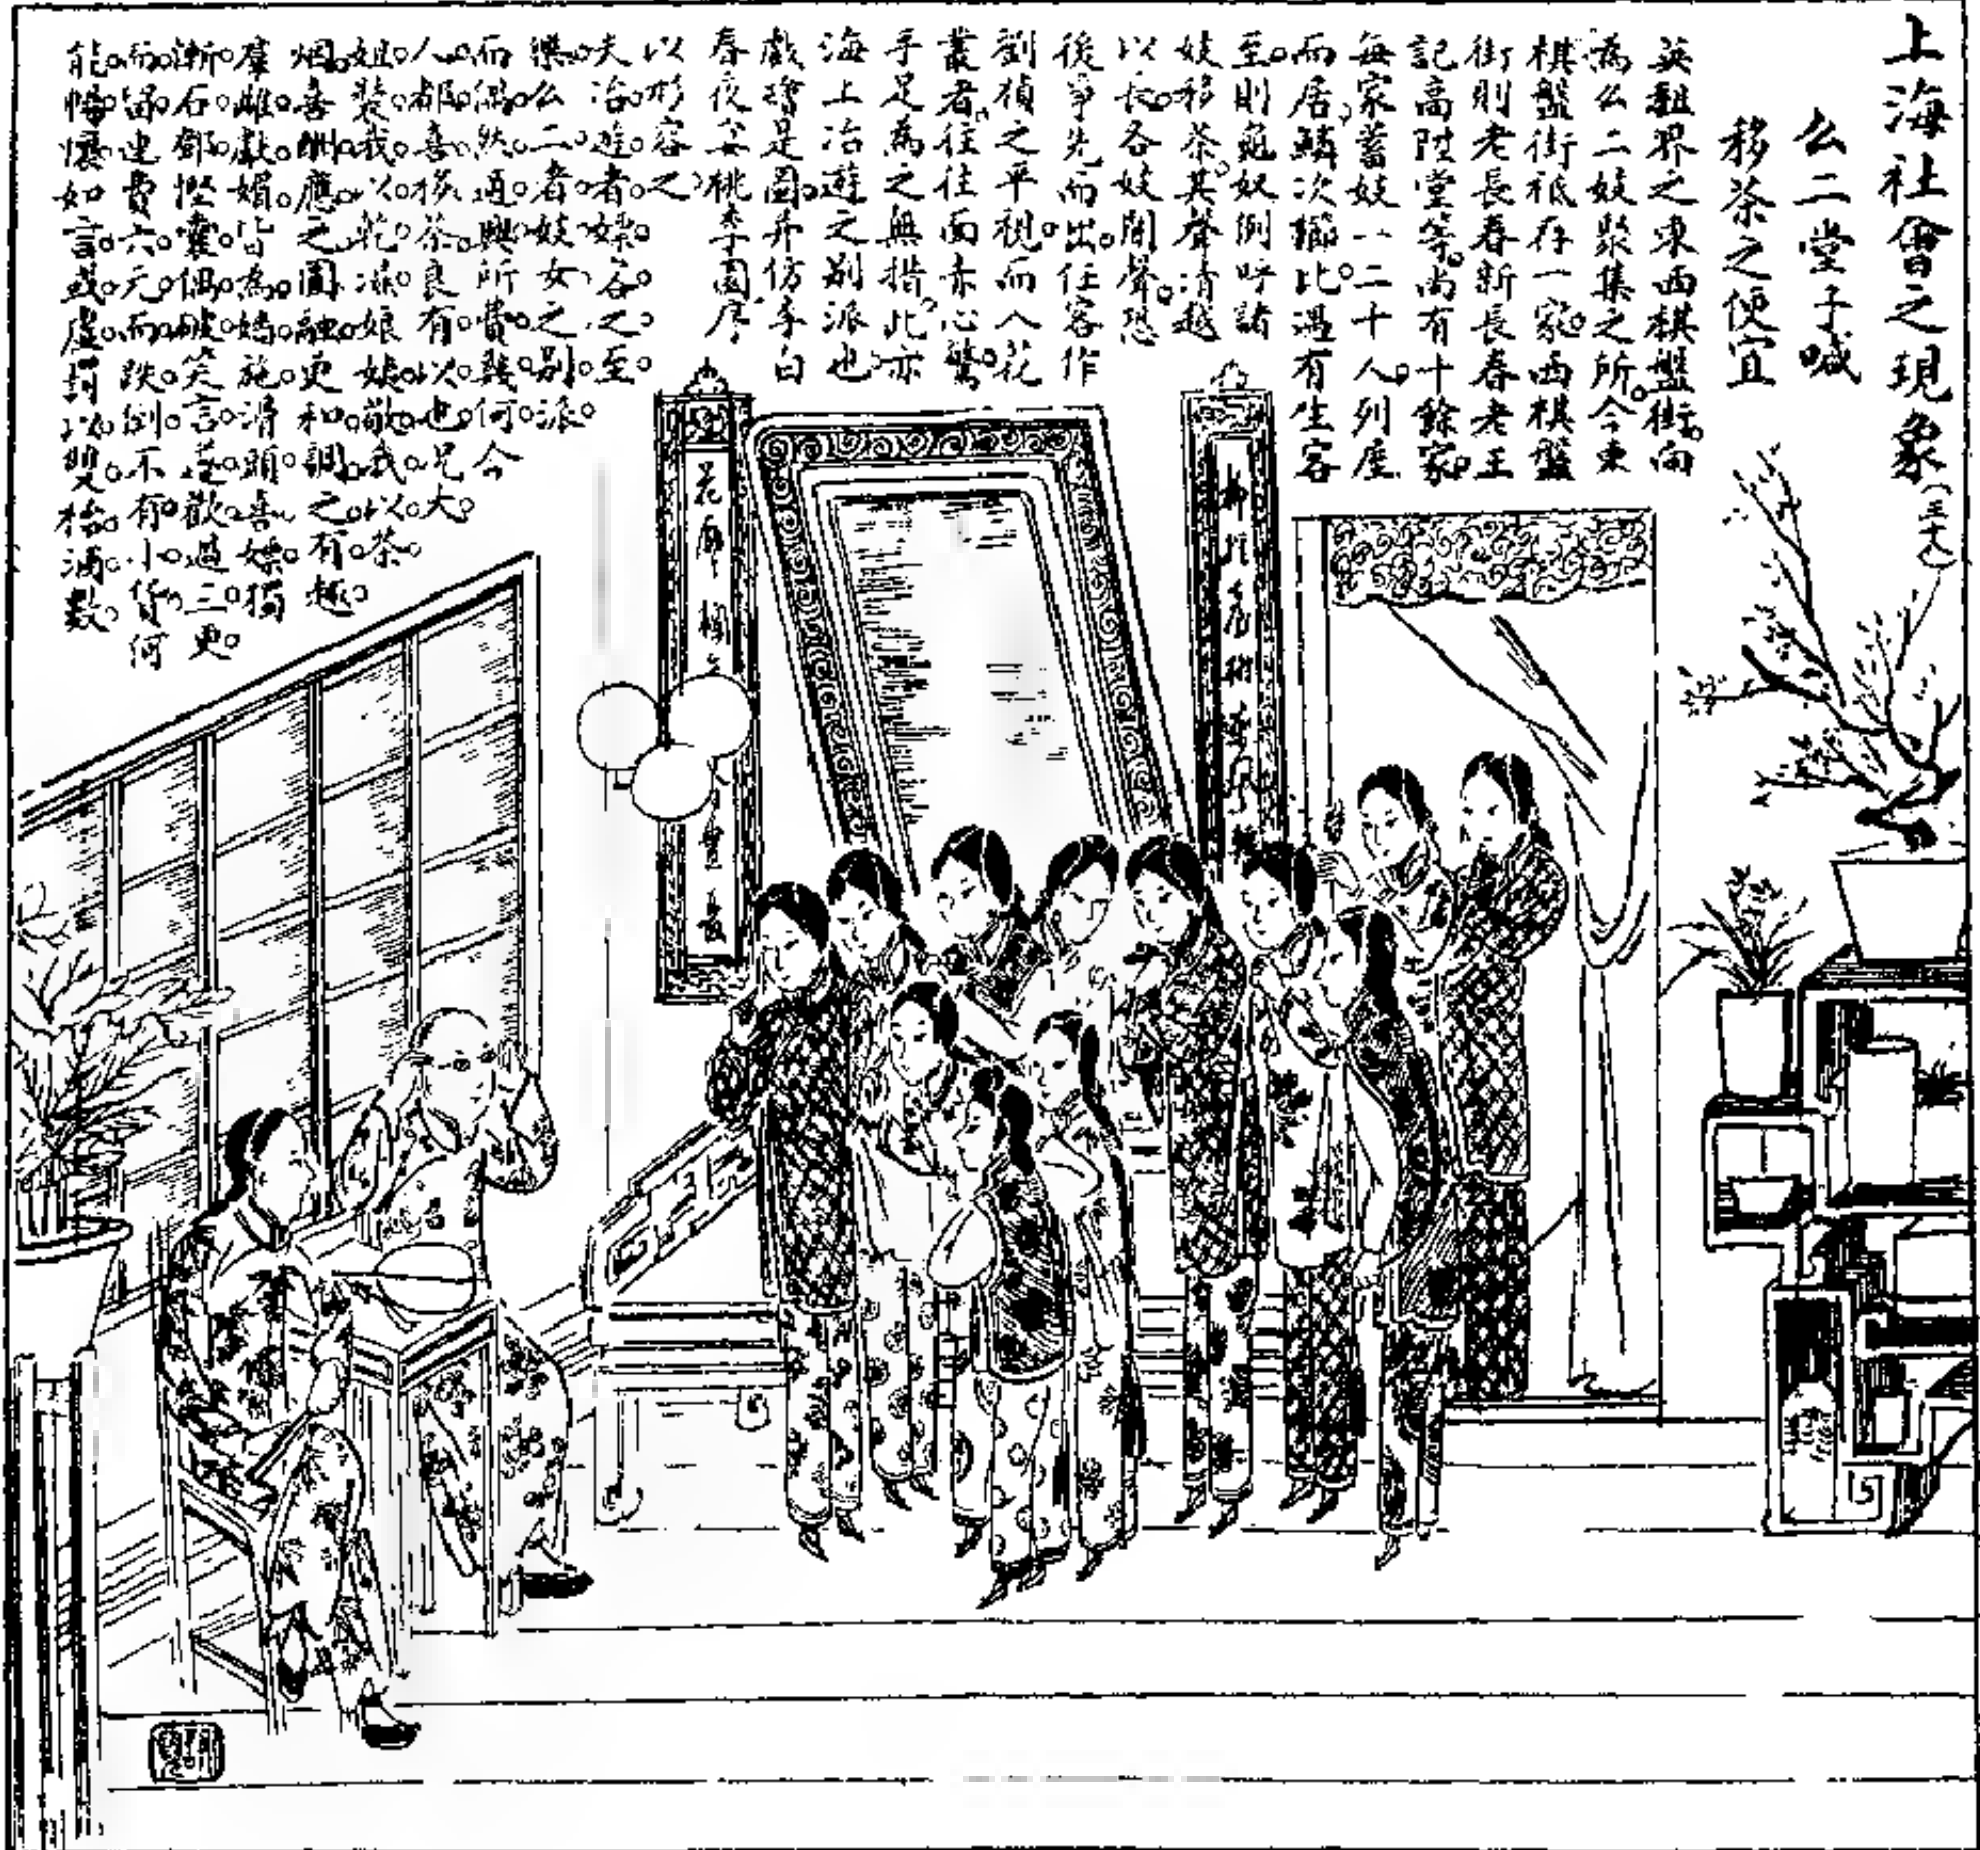 上海社會之現象(三十八)
么二堂子喊
移茶之便宜
英租界之東西棋盤街。向
為么二妓聚集之所。今東
棋盤街祗存一家。西棋盤
街則老長春新長春老王
記高陞堂等。尚有十餘家。
每家蓄妓一二十人。列屋
而居。鱗次櫛比。遇有生客
至。則龜奴例呼諸
妓移茶。其聲清越
以長。各妓聞聲。恐
後爭先而出。任客作
劉楨之平視。而入花
叢者。往往面赤心驚。
手足為之無措。此亦
海上冶遊之別派也。
戲繪是圖。并仿李白
春夜宴桃李園序。
以形容之。
夫冶遊者。嫖客之至
樂。么二者。妓女之別派。
而偶然適興。所費幾何。今
人都喜移茶。良有以也。況大
姐裝我以乾濕。娘姨敬我以茶
烟。喜酬應之圓融。更和調之有趣。
羣雌獻媚。皆為嬌施。滑頭喜嫖。獨
漸石鄧。慳囊偶破。笑言莚歡。過三更
而留連。費六元而跌倒。不有小貨。何
能暢懷。如言或虛。罰以雙枱酒數。